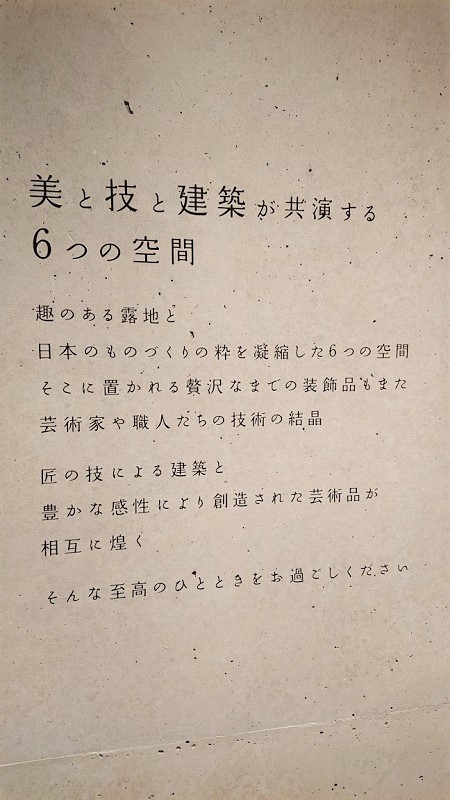 美と技と建築が共演する
6つの空間
趣のある露地と
日本のものづくりの粋を凝縮した6つの空間
そこに置かれる贅沢なまでの装飾品もまた
芸術家や職人たちの技術の結晶
匠の技による建築と
豊かな感性により創造された芸術品が
相互に煌く
そんな至高のひとときをお過ごしください